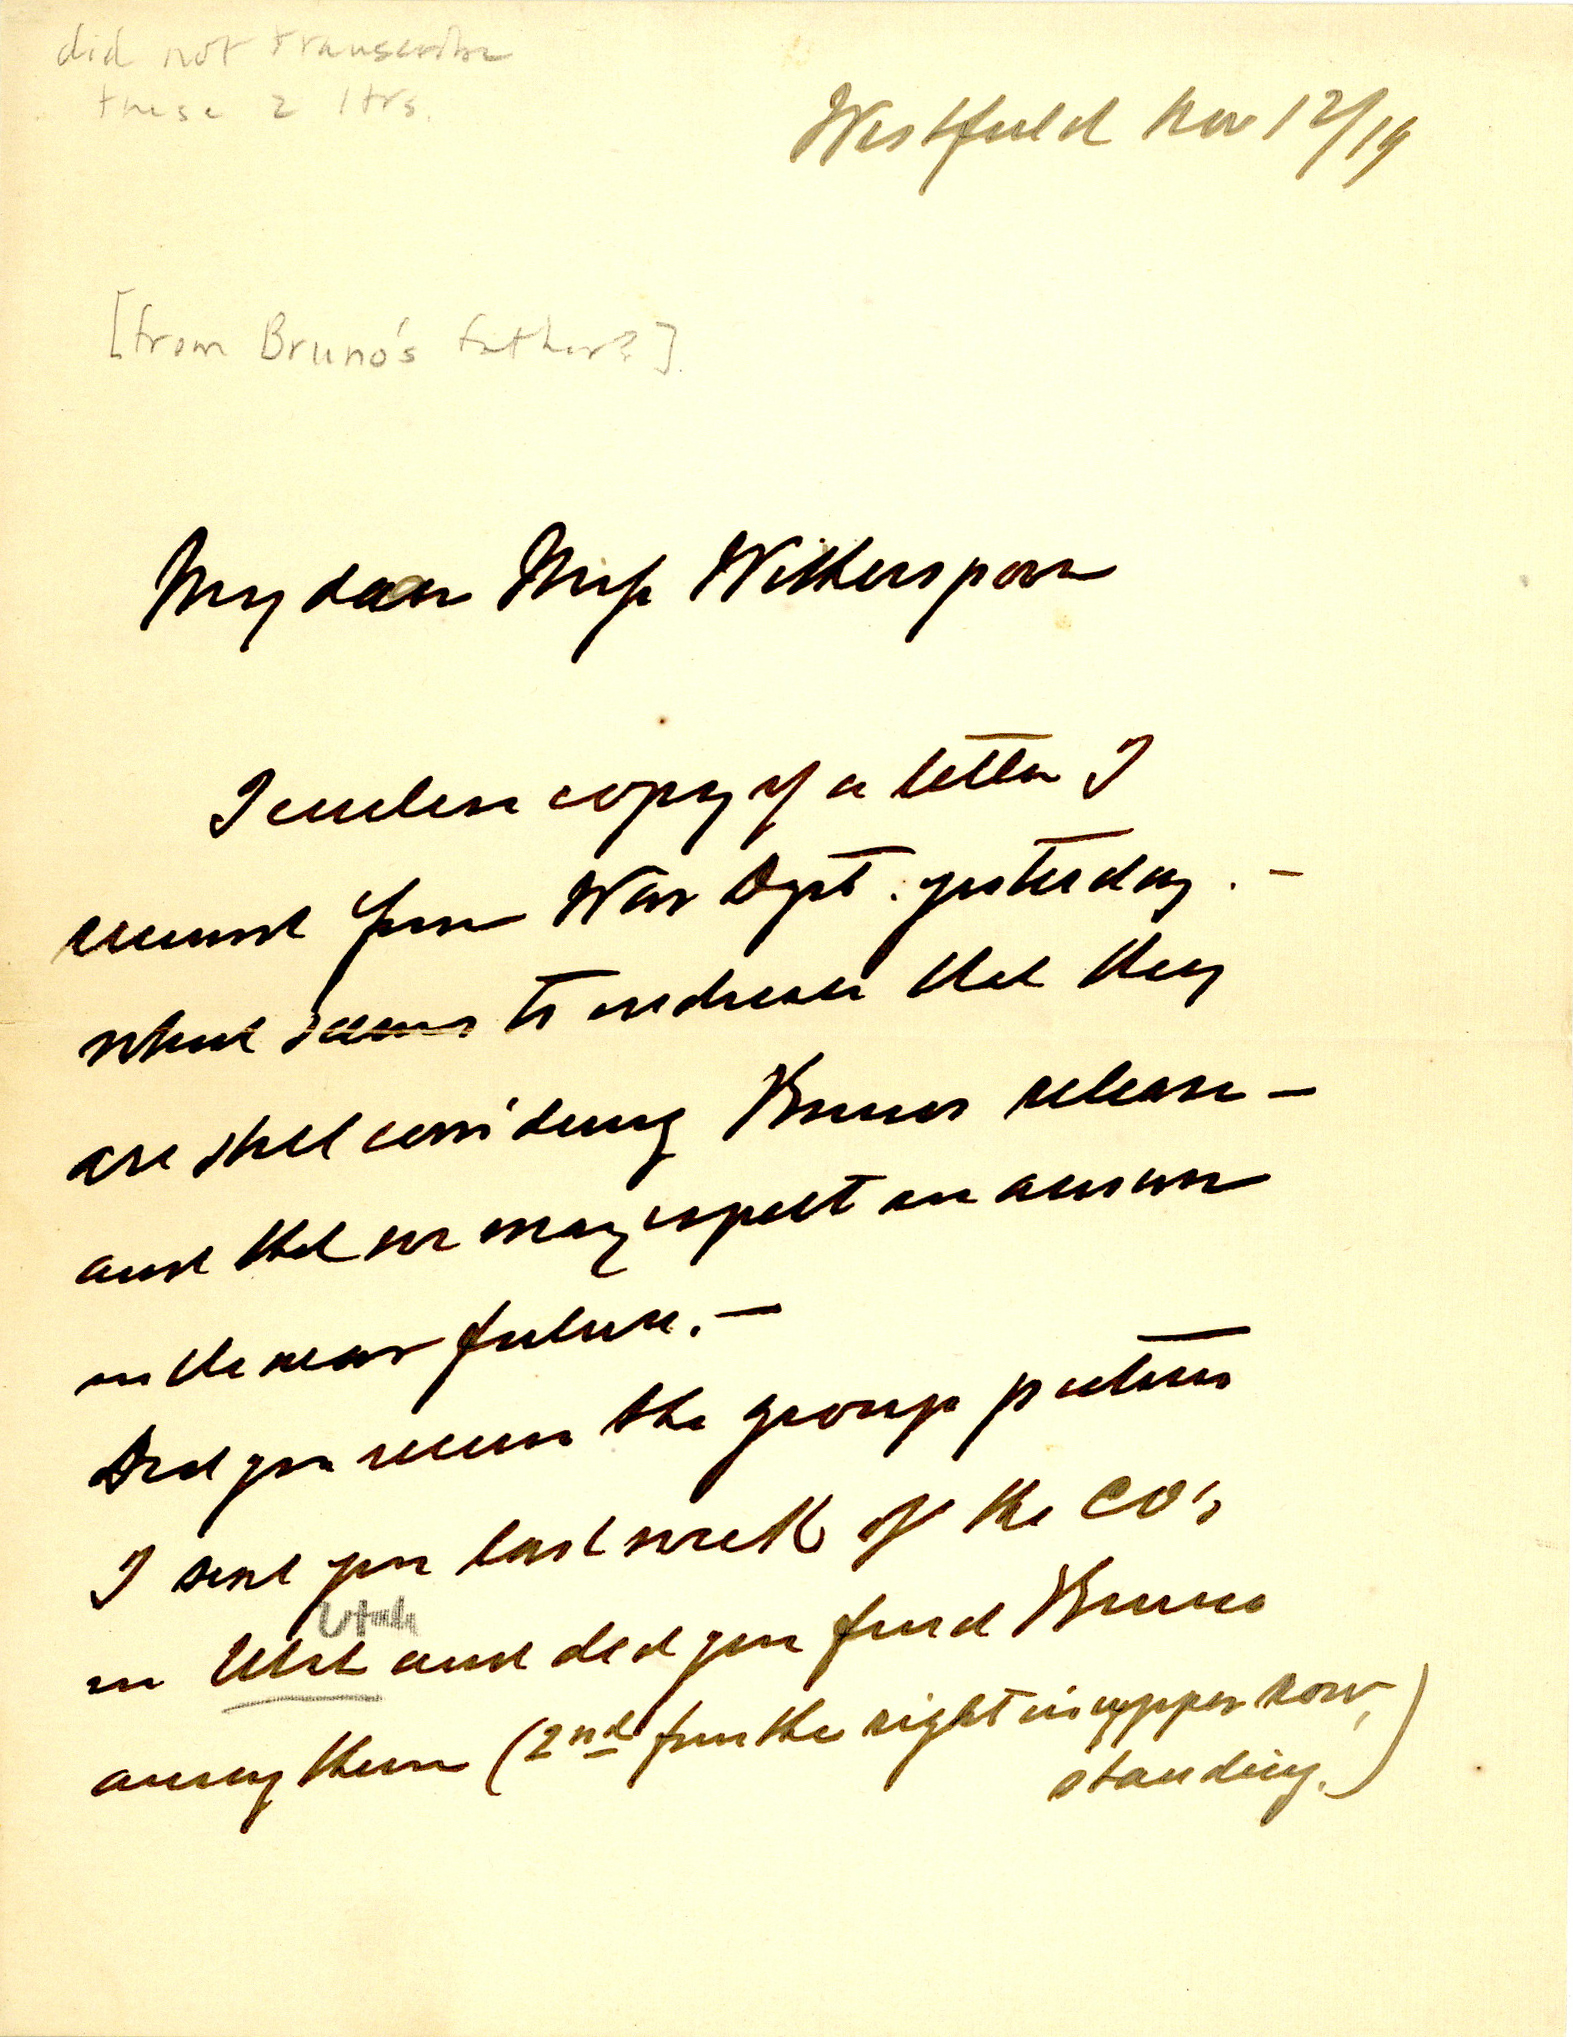 did not transcribe
these 2 ltrs.
Westfield Nov 12/19
[from Bruno's father?]
My dear Miss Witherspoon
I enclose copy of a letter I
received from War Dept. yesterday. —
which seems to indicate that they
are still considering Brunos release —
and that we may expect an answer
in the near future. —
Did you receive the group picture
I sent you last week of the CO's
Utah
in Utah and did you find Bruno
among them (2nd from the right in upper row,
standing.)